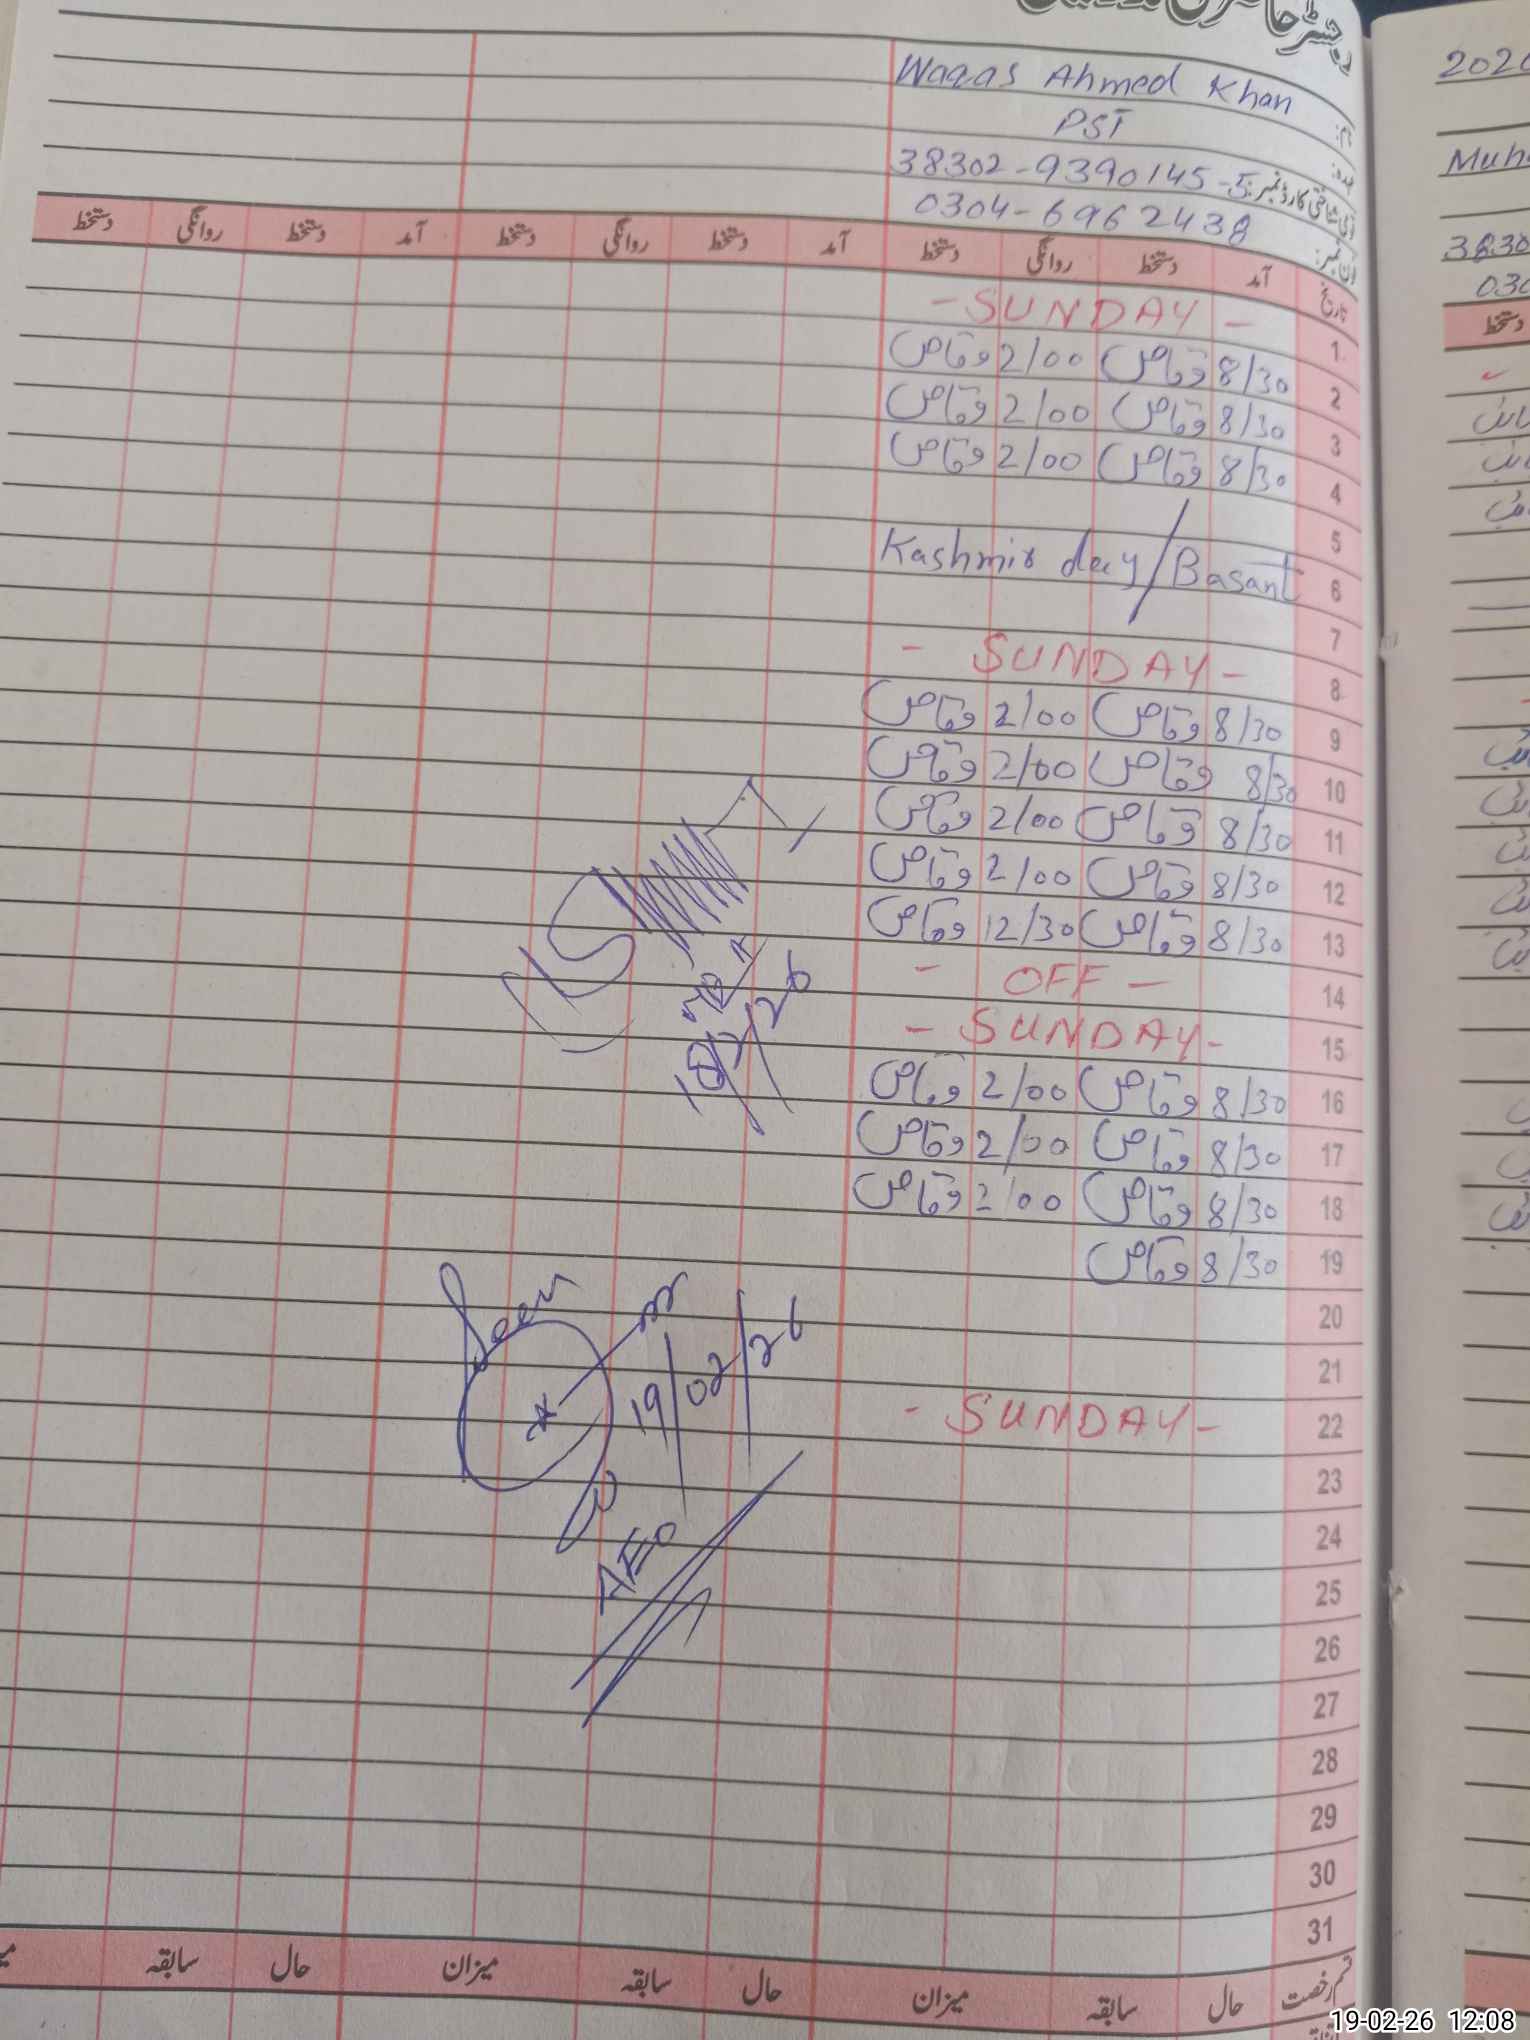 Waqas Ahmed Khan
PST
38302-9390145-5
0304-6962438
تاریخ آمد دستخط روانگی دستخط آمد دستخط روانگی دستخط آمد دستخط روانگی دستخط
1 - SUNDAY -
2 8/30 وقاص 2/00 وقاص
3 8/30 وقاص 2/00 وقاص
4 8/30 وقاص 2/00 وقاص
5
6 Kashmir day/Basant
7
8 - SUNDAY -
9 8/30 وقاص 2/00 وقاص
10 8/30 وقاص 2/00 وقاص
11 8/30 وقاص 2/00 وقاص
12 8/30 وقاص 2/00 وقاص
13 8/30 وقاص 12/30 وقاص
14 - OFF -
15 - SUNDAY -
16 8/30 وقاص 2/00 وقاص
17 8/30 وقاص 2/00 وقاص
18 8/30 وقاص 2/00 وقاص
19 8/30 وقاص
20
21
22 - SUNDAY -
23
24
25
26
27
28
29
30
31
Seen
19/02/26
AEO
قسم رخصت حال سابقہ میزان حال سابقہ میزان حال سابقہ
3830
دستخط
19-02-26 12:08